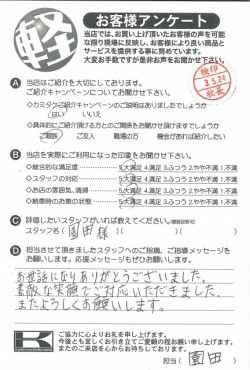 軽
お客様アンケート
当店では、お買い上げ頂いたお客様の声を可能
な限り現場に反映し、お客様により良い商品と
サービスを提供する事に努めています。
大変お手数ですが是非お声をお聞かせ下さい。
検印
3.5.24
社長
A 当店はご紹介を大切にしております。
ご紹介キャンペーンについてお聞かせ下さい。
◇カミタケご紹介キャンペーンのご説明はありましたでしょうか
はい いいえ
◇具体的にご紹介頂ける方との関係をお聞かせ頂けますでしょうか
ご親族 ご友人 職場の方 機会があれば紹介したい
B 当店を実際にご利用になった印象をお聞かせ下さい。
◇総合的な満足度 5.大満足 4.満足 3.ふつう 2.やや不満 1.不満
◇スタッフの対応 5.大満足 4.満足 3.ふつう 2.やや不満 1.不満
◇お店の雰囲気、清掃 5.大満足 4.満足 3.ふつう 2.やや不満 1.不満
◇納車時のお車の状態 5.大満足 4.満足 3.ふつう 2.やや不満 1.不満
C 評価したいスタッフがいれば教えてください。
スタッフ名( 園田様 )
D 担当させて頂きましたスタッフへのご指摘、ご指導メッセージを
お願いします。応援メッセージもぜひお願いします。
お世話になりありがとうございました。
素敵な笑顔でご対応いただきました。
またよろしくお願いします。
K
ご協力に心よりお礼を申し上げます。
今後とも宜しくお引き立てご愛顧の程お願い申し上げます。
またのご来店を心からお待ちしております。
担当( 園田 )